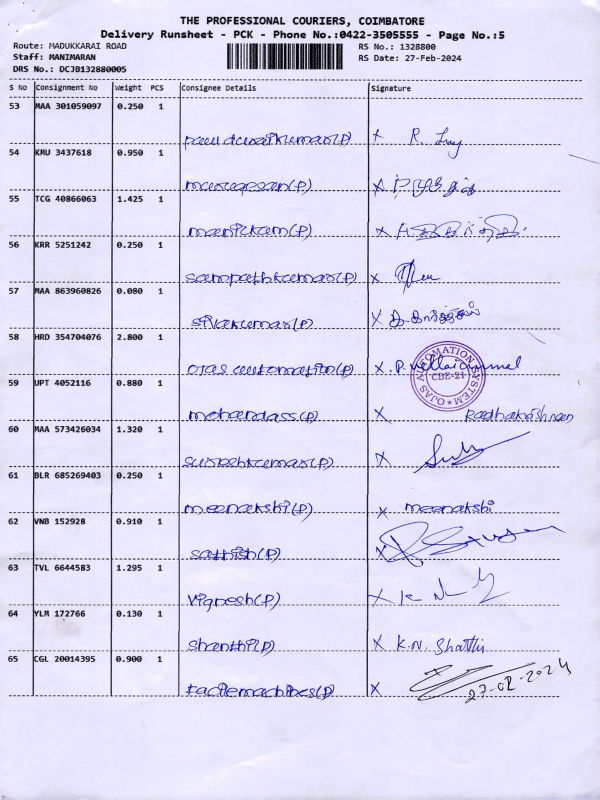 THE PROFESSIONAL COURIERS, COIMBATORE
Delivery Runsheet - PCK - Phone No.:0422-3505555 - Page No.:5
Route: MADUKKARAI ROAD RS No.: 1328800
Staff: MANIMARAN RS Date: 27-Feb-2024
DRS No.: DCJB132880005
S No Consignment No Weight PCS Consignee Details Signature
53 MAA 301059097 0.250 1
(P) x R.
54 KMU 3437618 0.950 1
murugesan(P) x
55 TCG 40866063 1.425 1
manickam(P) x
56 KRR 5251242 0.250 1
sampathkumar(P) x
57 MAA 863960826 0.080 1
sivakumar(P) x
58 HRD 354704076 2.800 1
ojas automation(P) x P.
OJAS AUTOMATION SYSTEM
CBE-21
59 UPT 4052116 0.880 1
mohandass(P) x Radhakrishnan
60 MAA 573426034 1.320 1
sureshkumar(P) x
61 BLR 685269403 0.250 1
meenakshi(P) x meenakshi
62 VNB 152928 0.910 1
sathish(P) x
63 TVL 6644583 1.295 1
vignesh(P) x
64 YLM 172766 0.130 1
shanthi(P) x K.N. Shanthi
65 CGL 20014395 0.900 1
tactemachines(P) x 27-02-2024